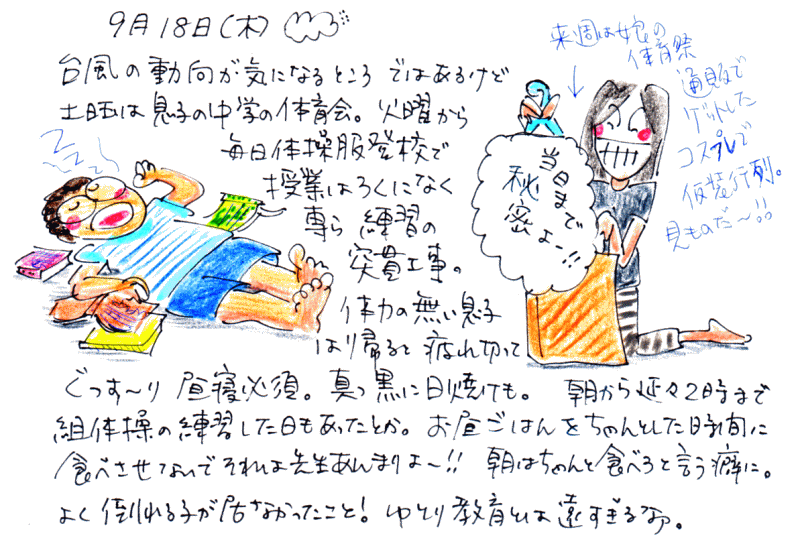 9月18日(木)
台風の動向が気になるところではあるけど
土日は息子の中学の体育会。火曜から
毎日体操服登校で
授業はろくになく
専ら練習の
突貫工事。
体力の無い息子
は帰ると疲れ切って
ぐっす〜り昼寝必須。真っ黒に日焼けも。朝から延々2時まで
組体操の練習した日もあったとか。お昼ごはんをちゃんとした時間に
食べさせないでそれは先生あんまりよ〜!!朝はちゃんと食べろと言う癖に。
よく倒れる子が居なかったこと!ゆとり教育とは遠すぎるなァ。
来週は娘の
体育祭
通販で
ゲットした
コスプレで
仮装行列。
見ものだ〜!!
当日まで
秘密よー!!
ZZZZ